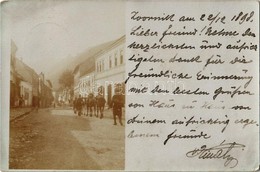 Zvornik am 22/12 1898.
Lieber Freund! Nehme den
herzlichsten und aufrich
tigsten Dank für die
freundliche Erinnerung
mit den besten Grüßen
von Haus zu Haus von
deinem aufrichtig erge
benem Freunde